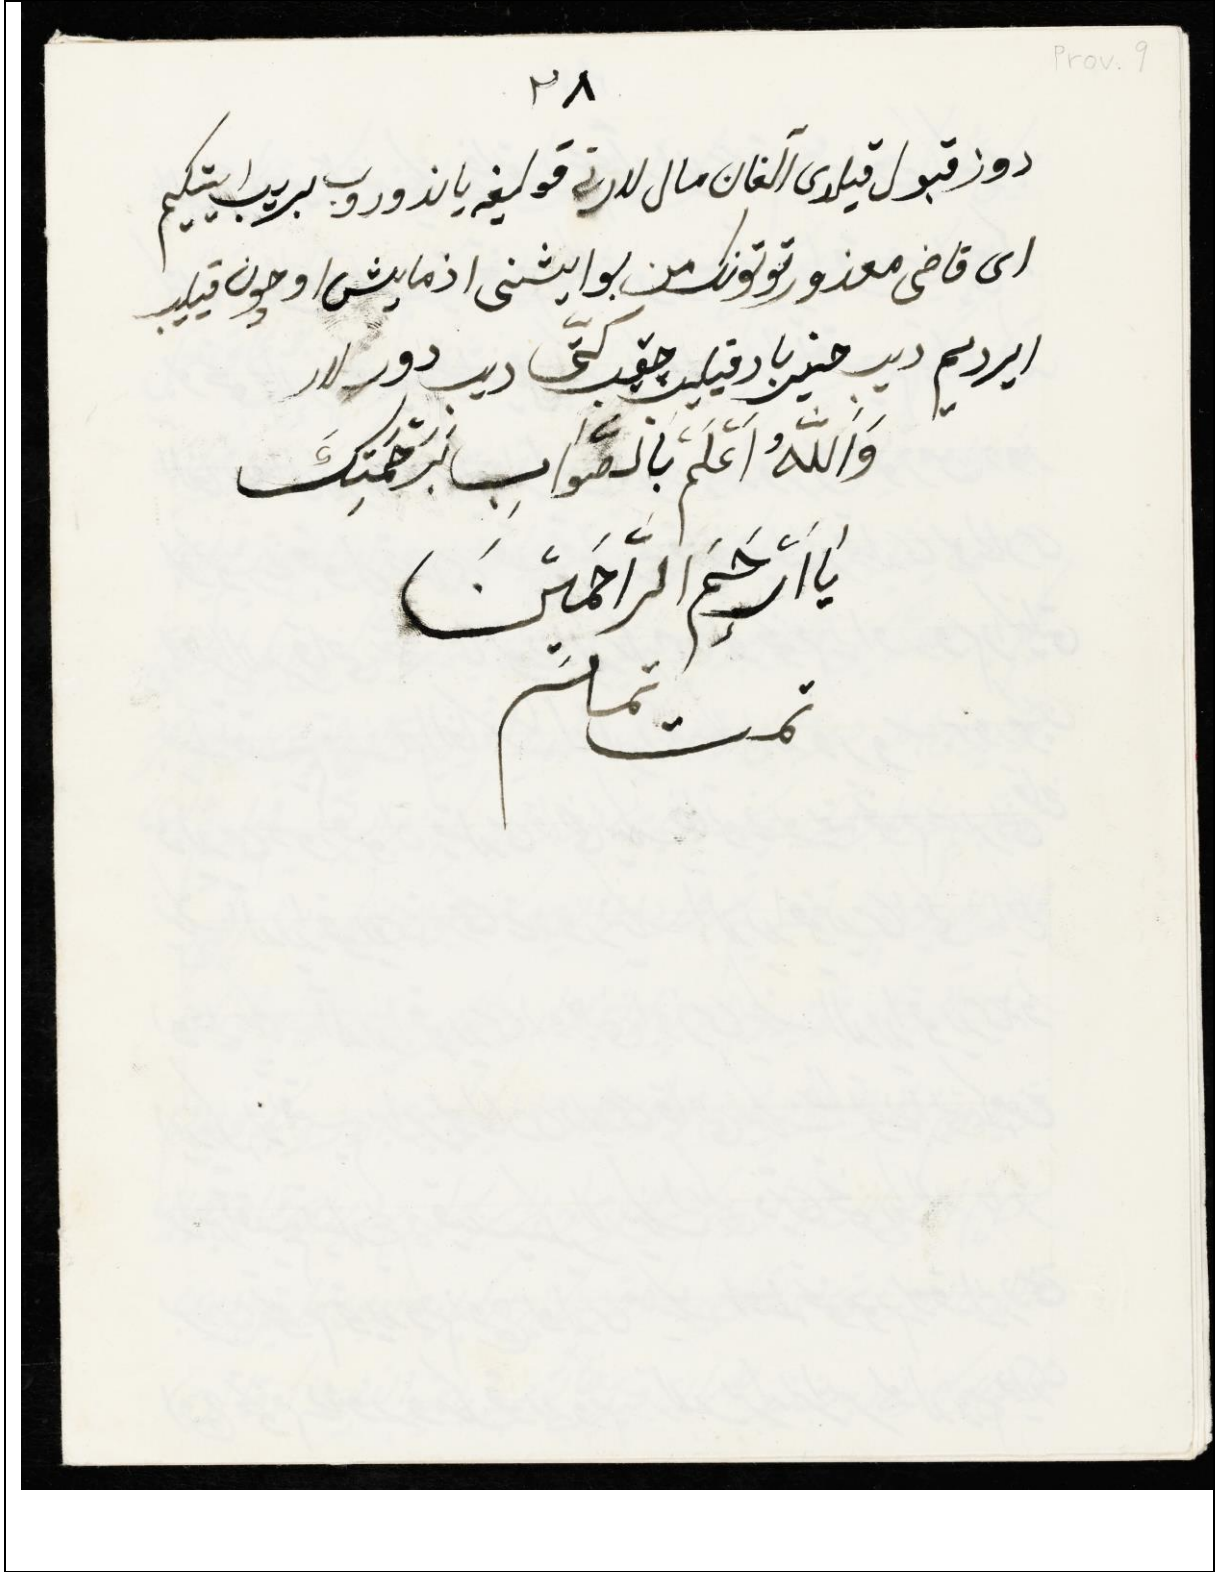 Prov. 9
٢٨
دور قبول قیلدی آلغان مال لارنی قولیغه یاندوروب بریب ایتیکیم
ای قاضی معذور توتونک من بو ایشنی ازمایش اوچون قیلیب
ایردیم دیب خیر باد قیلیب چقیب کتّی دیب دور لار
وَاَللّٰهُ اَعْلَمْ بَالصَّوَابِ بَرَحْمَتِكَ
یَا اَرْحَمَ الرَّاحَمِیْنَ
تمت تمام